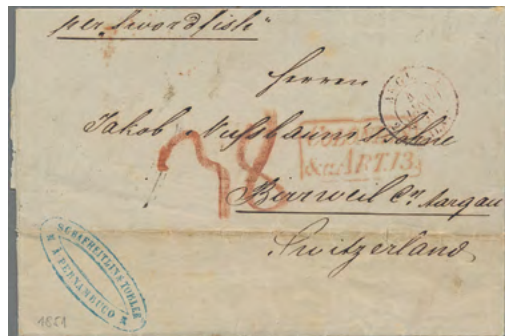 per „Swordfish"
Herren
Jakob Nussbaum & Söhne
&a: ART. 13
Birrweil Cn Aargau
Switzerland
SCHAFHEITLIN & TOBLER
À PERNAMBUCO
1851